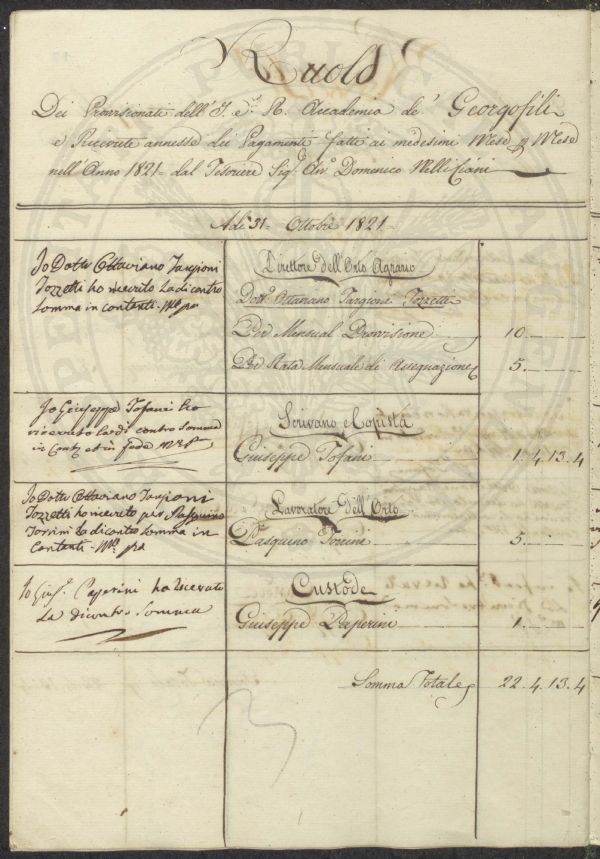 Ruolo
Dei Provisionati dell' I. e R. Accademia de' Georgofili
e Ricevute annesse dei Pagamenti fatti ai medesimi Mese p Mese
nell' Anno 1821 - dal Tesoriere Sig. Domenico Nelli Ciani
Adi 31 - Ottobre 1821 -
Io Dottr Ottaviano Targioni
Tozzetti ho ricevuto la di contro
somma in contanti
Direttore dell' Orto Agrario
Dott. Ottaviano Targioni Tozzetti
Per Mensual Provisione 10. — —
Per Rata Mensuale di Assegnazione 5. — —
Io Giuseppe Tofani ho
ricevuto la di contro Somma
in Cont et in fede
Scrivano e Copista
Giuseppe Tofani 1. 4. 13. 4
Io Dottr Ottaviano Targioni
Tozzetti ho ricevuto per Pasquino
Torrini la di contro Somma in
Contanti
Lavoratore dell' Orto
Pasquino Torrini 5. — —
Io Gius. Paperini ho ricevuto
La di contro Somma
Custode
Giuseppe Paperini 1. — —
Somma Totale 22. 4. 13. 4